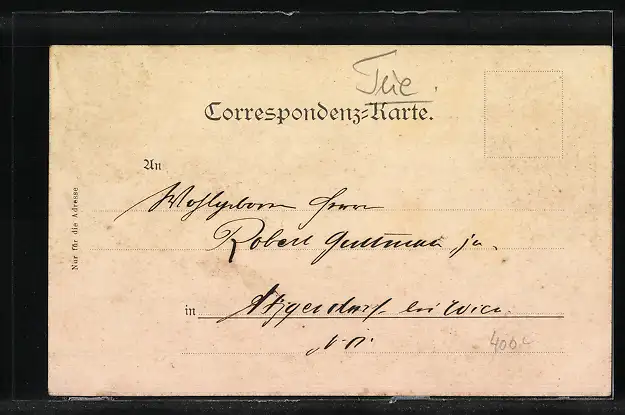 Trie.
Correspondenz-Karte.
An
Wohlgeborn Herrn
Robert Guttmann ju.
in Atzgersdorf bei Wien
N. Ö.
Nur für die Adresse
400.-